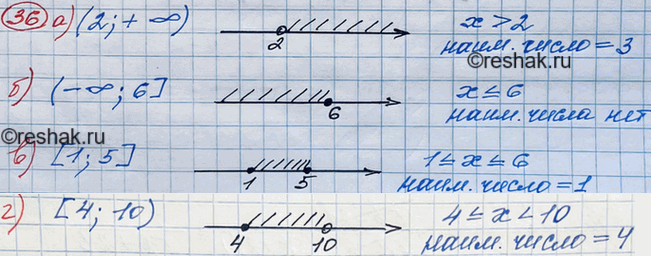 36 а) (2; + ∞) 2 x > 2
наим. число = 3
©reshak.ru
б) (-∞; 6] 6 x ≤ 6
наим. числа нет
©reshak.ru
в) [1; 5] 1 5 1 ≤ x ≤ 6
наим. число = 1
г) [4; 10) 4 10 4 ≤ x < 10
наим. число = 4